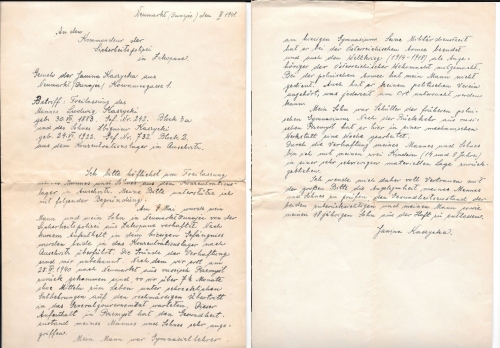 Neumarkt (Dunajec) den X 1941
An den
Kommandeur der
Sicherheitspolizei
in Zakopane.
Gesuch der Janina Kaszycka aus
Neumarkt (Dunajec)
Betrifft: Freilassung des
Mannes Ludwig Kaszycki
geb. 30. 1883.
und des Sohnes
geb. 24. 1922. Block 2.
aus dem Konzentrationslager in Auschwitz.
Ich bitte höflichst um Freilassung
meines Mannes und Sohnes aus dem Konzentrations-
lager Auschwitz. Meine Bitte unterbreite ich
mit folgender Begründung:
Am 7 Mai wurde mein
Mann und mein Sohn in Neumarkt/Dunajec von der
Sicherheitspolizei aus Zakopane verhaftet. Nach
kurzem Aufenthalt in dem hiesigen Gefängniss
wurden beide in das Konzentrationslager nach
Auschwitz überführt. Die Gründe der Verhaftung
sind mir unbekannt. Nachdem wir erst am
28 1940 nach Neumarkt aus russisch Przemysl
zurück gekommen sind, wo wir über 7½ Monate
ohne Mitteln zum Leben unter schrecklichen
Entbehrungen auf den rechtmässigen Übertritt
in das Generalgouvernement warteten. Dieser
Aufenthalt in Przemysl hat den Gesundheit-
zustand meines Mannes und Sohnes sehr ange-
griffen.
Mein Mann war Gymnasiallehrer
am hiesigen Gymnasium. Seine Militärdienstzeit
hat er bei der Österreichischen Armee beendet
und auch den Weltkrieg (1914-1918) als Ange-
höriger der Österreichischer Wehrmacht mitgemacht.
Bei der polnischen Armee hat mein Mann nicht
gedient. Auch hat er keinem politischen Verein
angehört, was jederzeit am Ort untersucht werden
kann.
Mein Sohn war Schüler des früheren polni-
schen Gymnasiums. Nach der Rückkehr aus russi-
schen Przemysl hat er hier in einer mechanischen
Werkstatt und Säge gearbeitet.
Durch die Verhaftung meines Mannes und Sohnes
bin ich mit meinen zwei Kindern (14 und 8 Jahre)
in einer sehr schwierigen materiellen Lage zurück-
geblieben.
Ich wende mich daher voll Vertrauen mit
der großen Bitte die Angelegenheit meines Mannes
und Sohnes zu prüfen, den Gesundheitszustand der
beiden zu berücksichtigen und meinen Mann sowie
meinen 18 jährigen Sohn aus der Haft zu entlassen.
Janina Kaszycka.